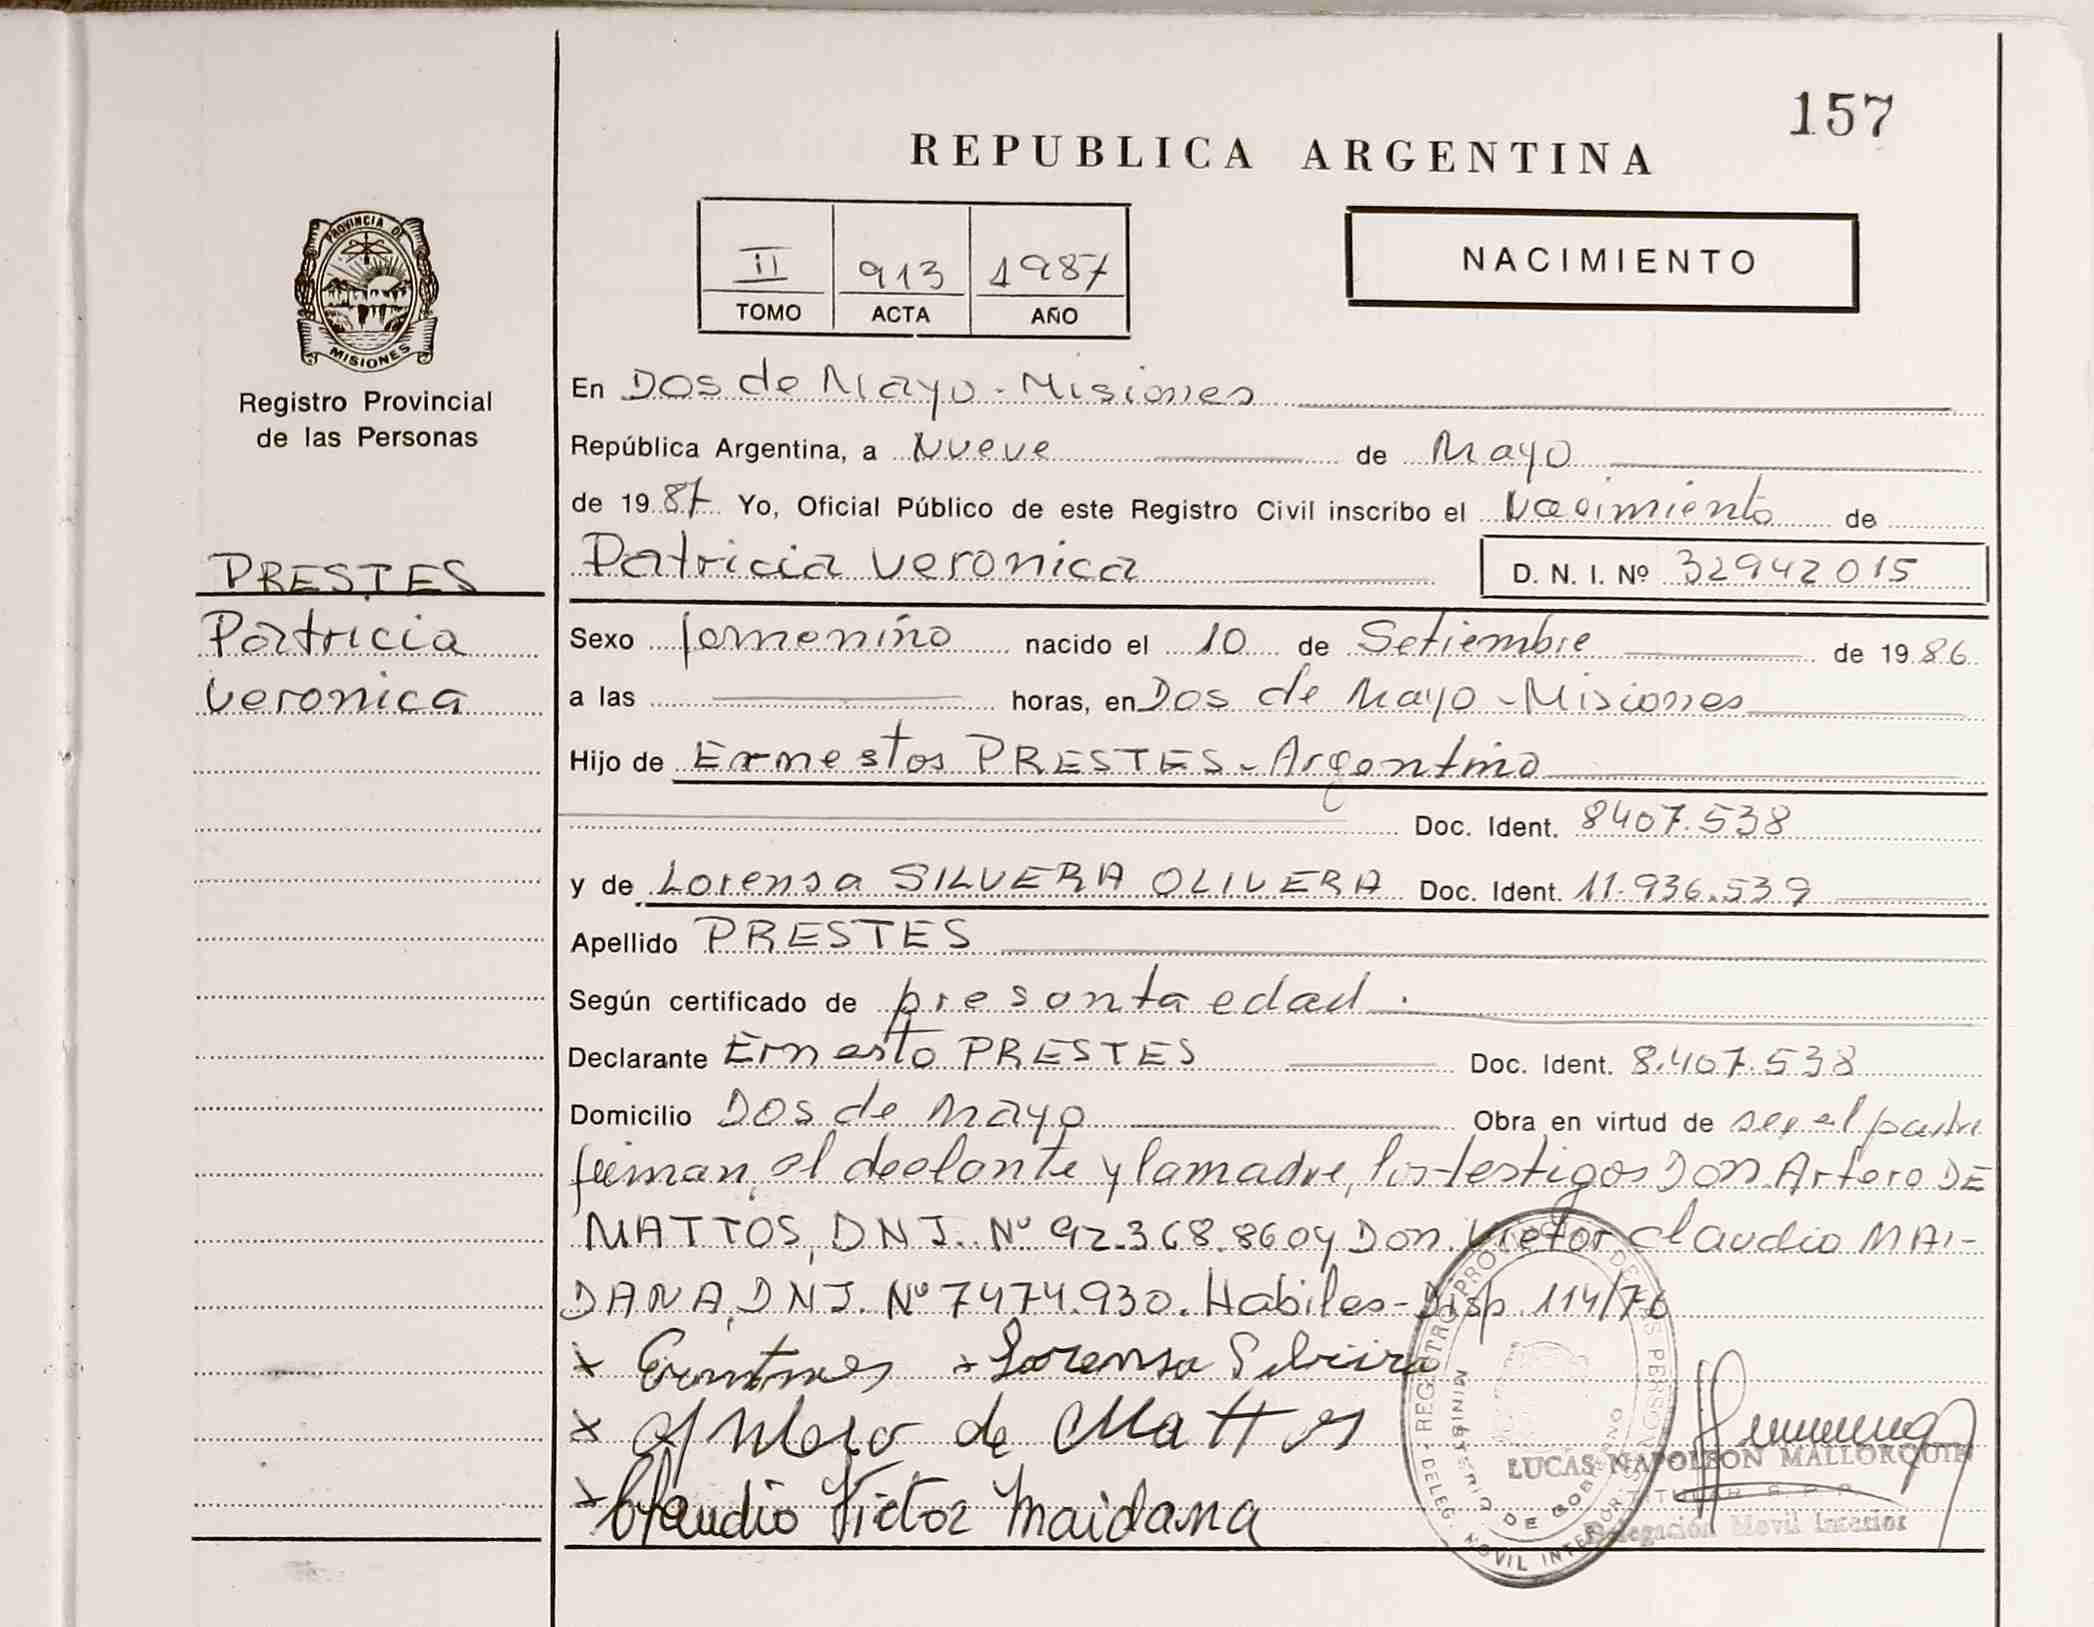 157
REPUBLICA ARGENTINA
PROVINCIA DE
MISIONES
Registro Provincial
de las Personas
II 913 1987
TOMO ACTA AÑO
NACIMIENTO
En Dos de Mayo - Misiones
República Argentina, a Nueve de Mayo
de 1987 Yo, Oficial Público de este Registro Civil inscribo el Nacimiento de
PRESTES
Patricia
Veronica
Patricia Veronica D. N. I. Nº 32942015
Sexo femenino nacido el 10 de Setiembre de 1986
a las horas, en Dos de Mayo - Misiones
Hijo de Ernestos PRESTES - Argentino
Doc. Ident. 8407.538
y de Lorensa SILVERA OLIVERA Doc. Ident. 11.936.539
Apellido PRESTES
Según certificado de presonta edad.
Declarante Ernesto PRESTES Doc. Ident. 8.407.538
Domicilio Dos de Mayo Obra en virtud de ser el padre
firman, el declante y la madre, los testigos Don Artero DE
MATTOS, DNJ. Nº 92.368.860 y Don Victor Claudio MAI-
DANA, DNJ. Nº 7474.930. Habiles - Disp. 114/76
x x Lorensa Silveira
x de Mattos
x Claudio Victor Maidana
REGISTRO PROVINCIAL DE LAS PERSONAS
MINISTERIO DE GOBIERNO
DELEG. MOVIL INTERIOR
LUCAS NAPOLEON MALLORQUIN
TITULAR R.P.P.
Delegación Movil Interior